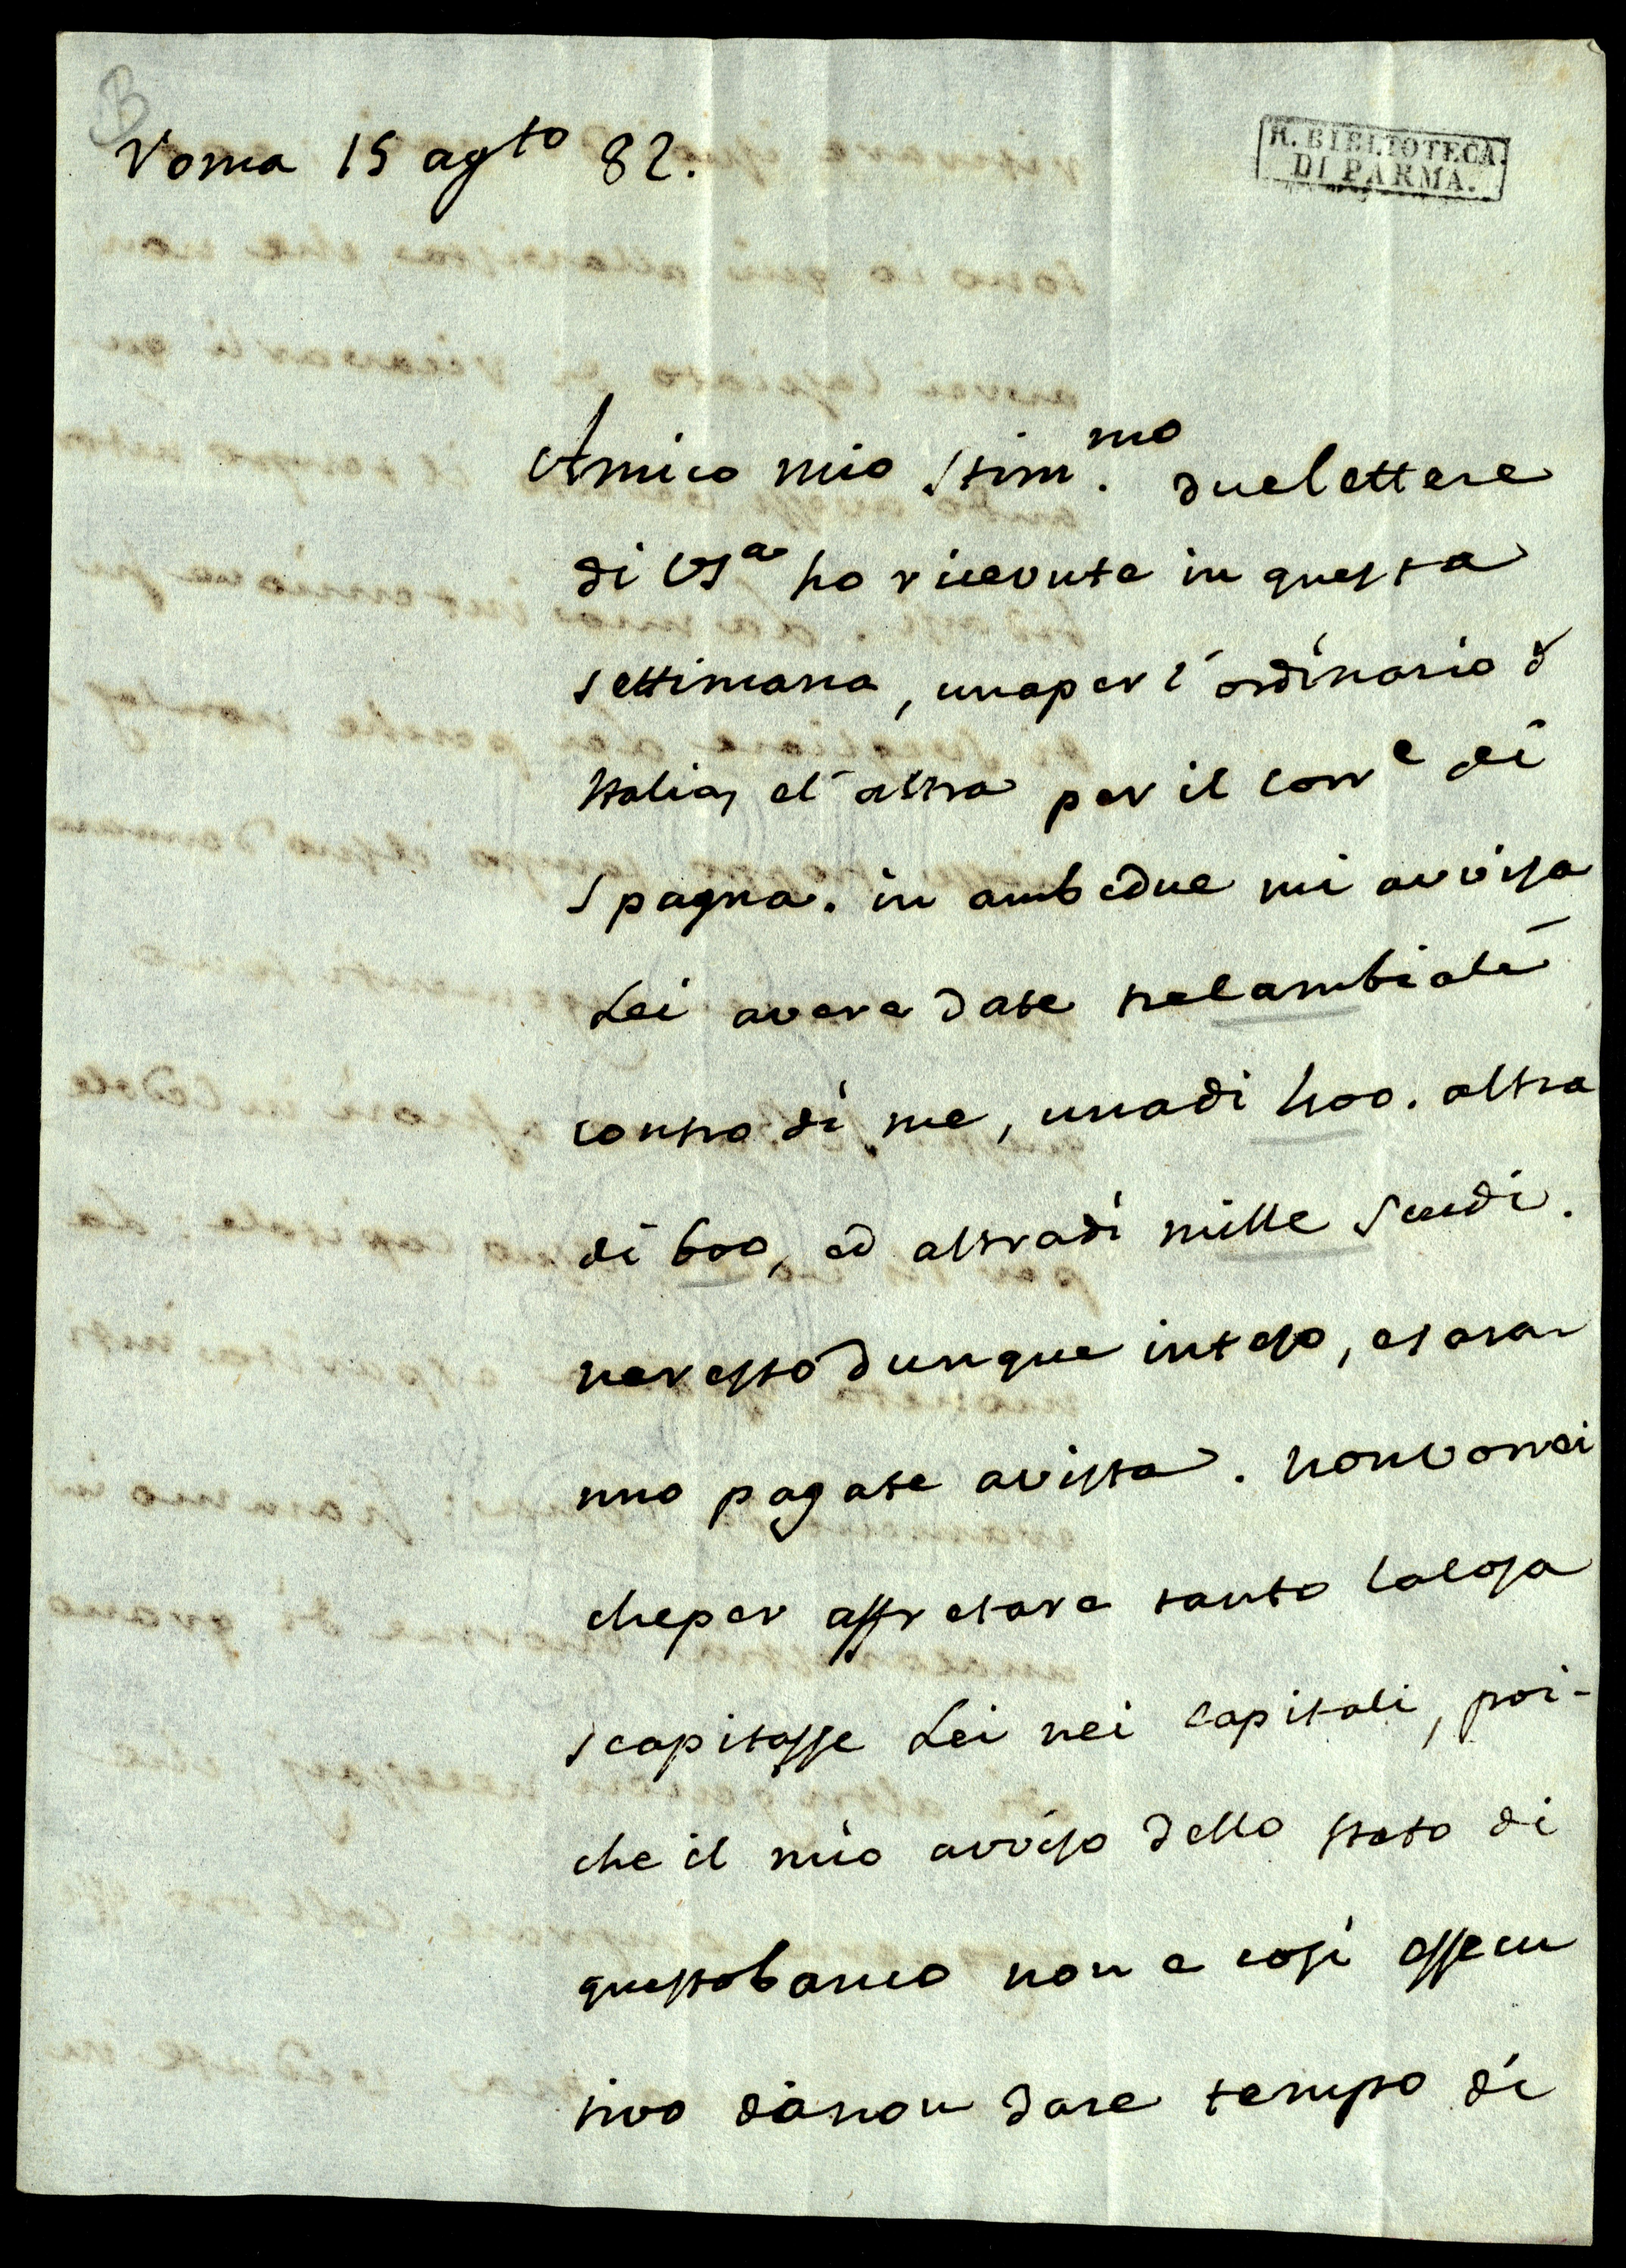 B
Roma 15 agto 82.
R. BIBLIOTECA
DI PARMA.
Amico mio stim.mo due lettere
di VSa ho ricevute in questa
settimana, una per l'ordinario d'
Italia, e l'altra per il corre di
Spagna. in ambedue mi avvisa
Lei avere date tre cambiali
contro di me, una di 400. altra
di 600, ed altra di mille scudi.
ne resto dunque inteso, e sara-
nno pagate a vista. non vorrei
che per affretare tanto la cosa
scapitasse Lei nei capitali, poi-
che il mio avviso dello stato di
questo banco non e cosi essecu
tivo da non dare tempo di